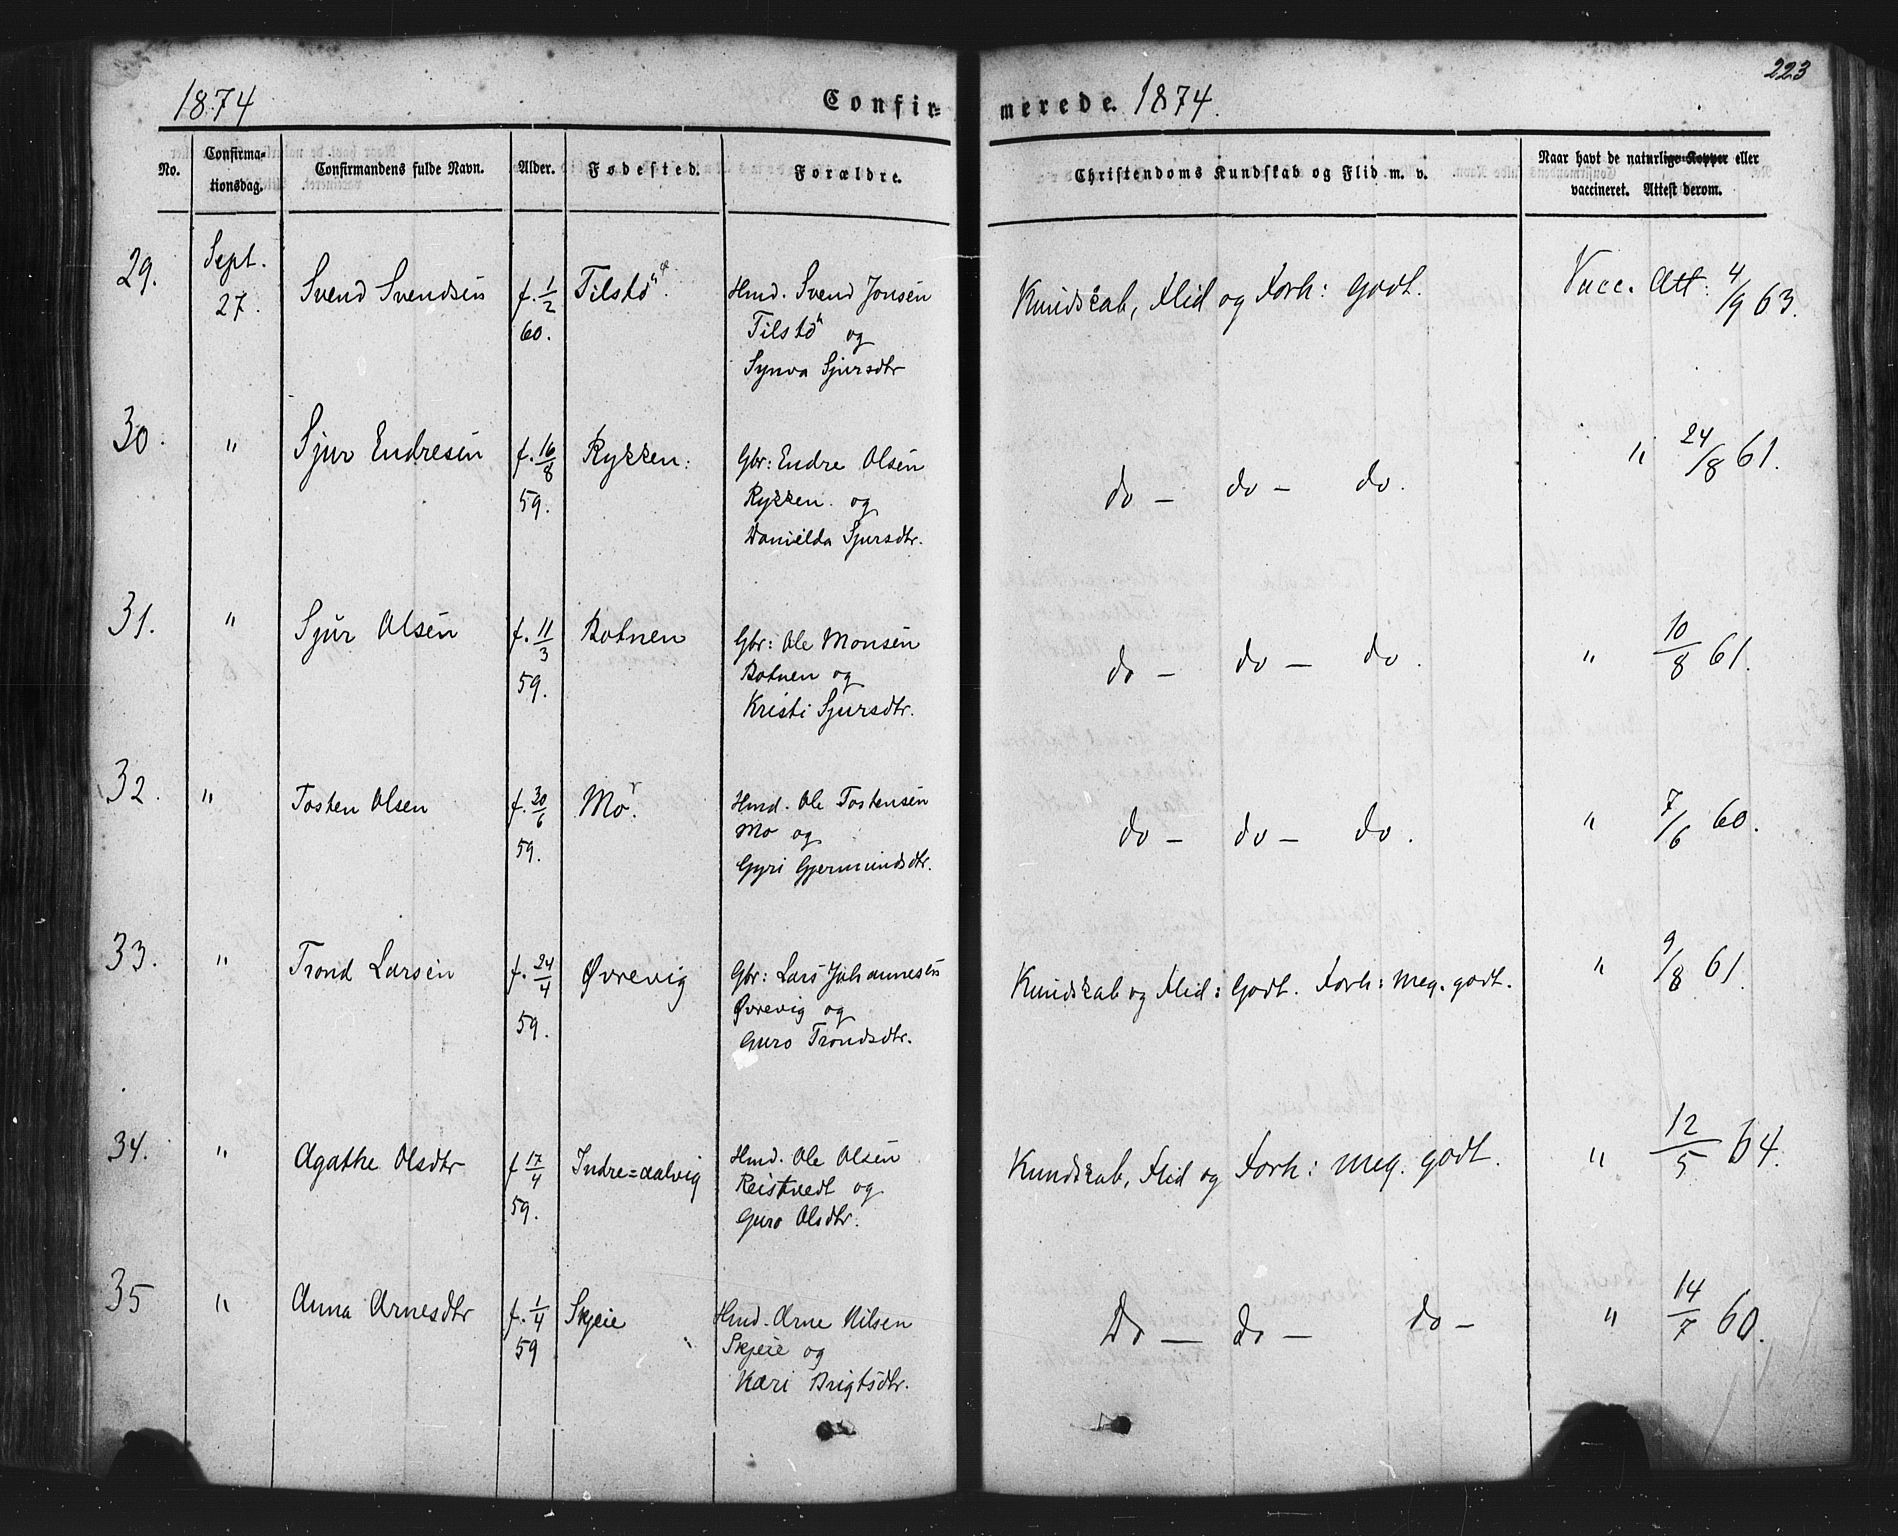 1874 Confir- merede. 1874. 223
No. Confirma- tionsdag. Confirmandens fulde Navn. Alder. Fødested. Forældre. Christendoms Kundskab og Flid m. v. Naar havt de naturlige Kopper eller vaccineret. Attest derom.
29. Sept. 27. Svend Svendsen f. 1/2 60. Tilstö. Hmd. Svend Jonsen
Tilstö og
Synva Sjursdtr
Kundskab, Flid og Forh: Godt. Vacc. Att: 4/9 63.
30. " Sjur Endresen f. 16/8 59. Rykken. Gbr: Endre Olsen
Rykken og
Danielda Sjursdtr.
do – do – do. " 24/8 61.
31. " Sjur Olsen f. 11/3 59. Botnen Gbr: Ole Monsen
Botnen og
Kristi Sjursdtr.
do – do – do. " 10/8 61.
32. " Tosten Olsen f. 30/6 59. Mo. Hmd. Ole Tostensen
Mo og
Gyri Gjermundsdtr.
do – do – do. " 7/6 60.
33. " Trond Larsen f. 24/4 59. Øvrevig Gbr: Lars Johannesen
Øvrevig og
Guro Trondsdtr.
Kundskab og Flid: Godt. Forh: Meg. godt. " 9/8 61.
34. " Agathe Olsdtr f 17/4 59. Indre=aalvig Hmd. Ole Olsen
Reistvedt og
Guro Olsdtr.
Kundskab, Flid og Forh: Meg. godt. " 12/5 64.
35 " Anna Arnesdtr f. 1/4 59 Skjeie Hmd. Arne Nilsen
Skjeie og
Kari Brigtsdtr.
Do – do – do – " 14/7 60.